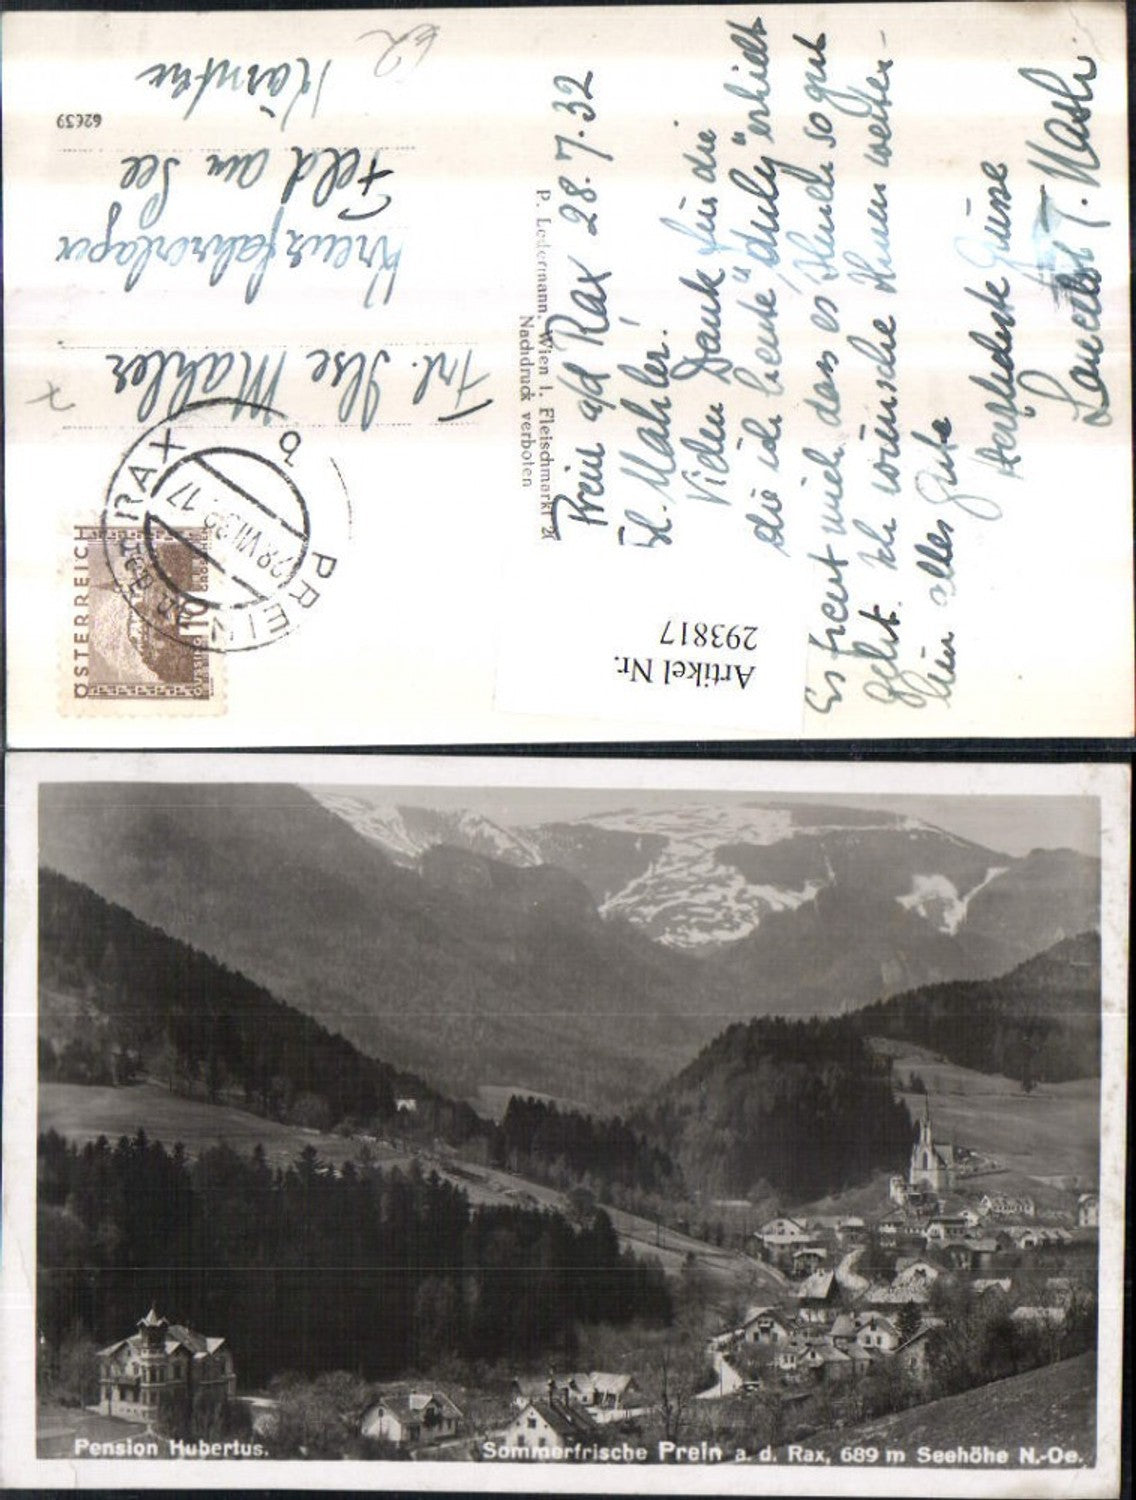 Prein a/d Rax 28.7.32
Frl. Mahler!
Vielen Dank für die
die ich heute "duly" erhielt
Es freut mich dass es Ihnen so gut
geht. Ich wünsche Ihnen weiter-
hin alles Gute
Herzlichste Grüsse
P. Ledermann, Wien I. Fleischmarkt 2
Nachdruck verboten
Frl. Ilse Mahler
Kreuzfahrerlager
Feld am See
Kärnten
62
62639
ÖSTERREICH
10
GROSCHEN
PREIN
RAX
b
28.VII.32 17
Artikel Nr.
293817
Pension Hubertus.
Sommerfrische Prein a. d. Rax, 689 m Seehöhe N.-Oe.